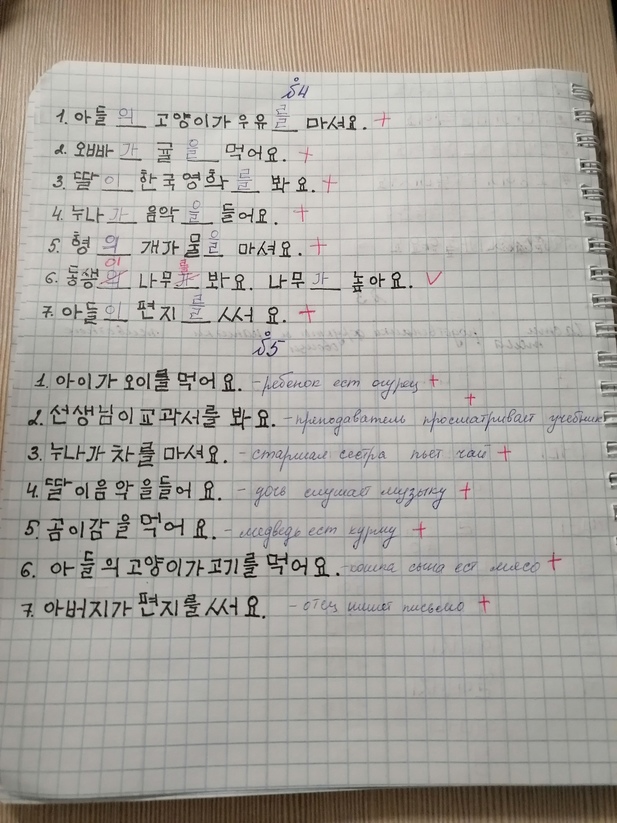 №4
1. 아들 의 고양이가 우유 를 마셔요. +
2. 오빠가 귤 을 먹어요. +
3. 딸 이 한국영화 를 봐요. +
4. 누나 가 음악 을 들어요. +
5. 형 의 개가 물 을 마셔요. +
이 를
6. 동생 의 나무 봐요. 나무 가 높아요. ✓
7. 아들 이 편지 를 써서요. +
№5
1. 아이가 오이를 먹어요. - ребёнок ест огурец +
2. 선생님이 교과서를 봐요. - преподаватель просматривает учебник +
3. 누나가 차를 마셔요. - старшая сестра пьёт чай +
4. 딸이 음악을 들어요. - дочь слушает музыку +
5. 곰이 감을 먹어요. - медведь ест хурму +
6. 아들의 고양이가 고기를 먹어요. - кошка сына ест мясо +
7. 아버지가 편지를 써서요. - отец пишет письмо +